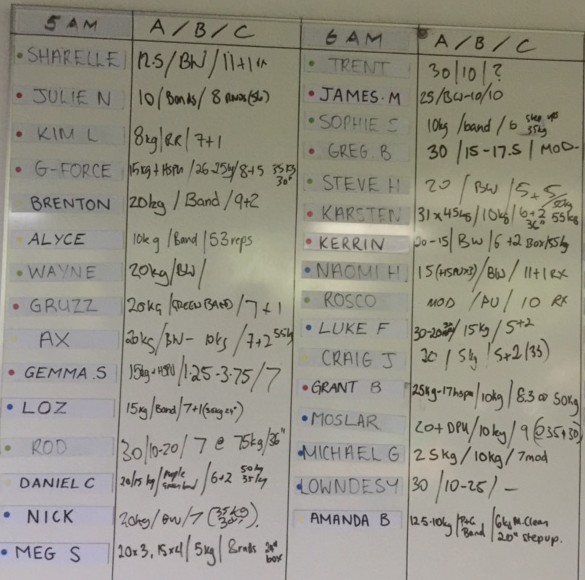 5 AM A / B / C
SHARELLE 12.5 / BW / 11+1
JULIE N 10 / Bands / 8
KIM L 8kg / RR / 7+1
G-FORCE 15kg + HSPU / 26-25kg / 8+5 35kg 30"
BRENTON 20kg / Band / 9+2
ALYCE 10kg / Band / 53 reps
WAYNE 20kg / BW /
GRUZZ 20kg / GREEN BAND / 7+1
AX 20kg / BW - 10kg / 7+2 55kg
GEMMA.S 15kg + HSPU / 1.25-3.75 / 7
LOZ 15kg / Band / 7+1
ROD 30 / 10-20 / 7 @ 75kg / 36"
DANIEL C 20/15 kg / Purple band / 6+2 50kg 35kg
NICK 20kg / BW / 7 (35kg 30")
MEG S 20x3, 15x4 / 5kg / 8 rnds 20" box
6 AM A / B / C
TRENT 30 / 10 / ?
JAMES.M 25 / BW-10 / 10
SOPHIE S 10kg / band / 6 step ups 35kg
GREG.B 30 / 15-17.5 / MOD-
STEVE H 20 / BW / 5+5 / 50kg
KARSTEN 31 x 45kg / 10kg / 6+2 55kg 36"
KERRIN 20-15 / BW / 6+2 Box / 55kg
NAOMI H 15 (HSPUx3) / BW / 11+1 RX
ROSCO MOD / PU / 10 RX
LUKE F 30-20 / 15kg / 5+2
CRAIG J 20 / 5kg / 5+2 (35)
GRANT B 25kg-17hspu / 10kg / 8.3 @ 50kg
MOSLAR 20+ DPU / 10kg / 9 (@35+30)
MICHAEL G 25kg / 10kg / 7mod
LOWNDESY 30 / 10-25 / -
AMANDA B 12.5-10kg / Band / 6kg M.Clean 20" step up.